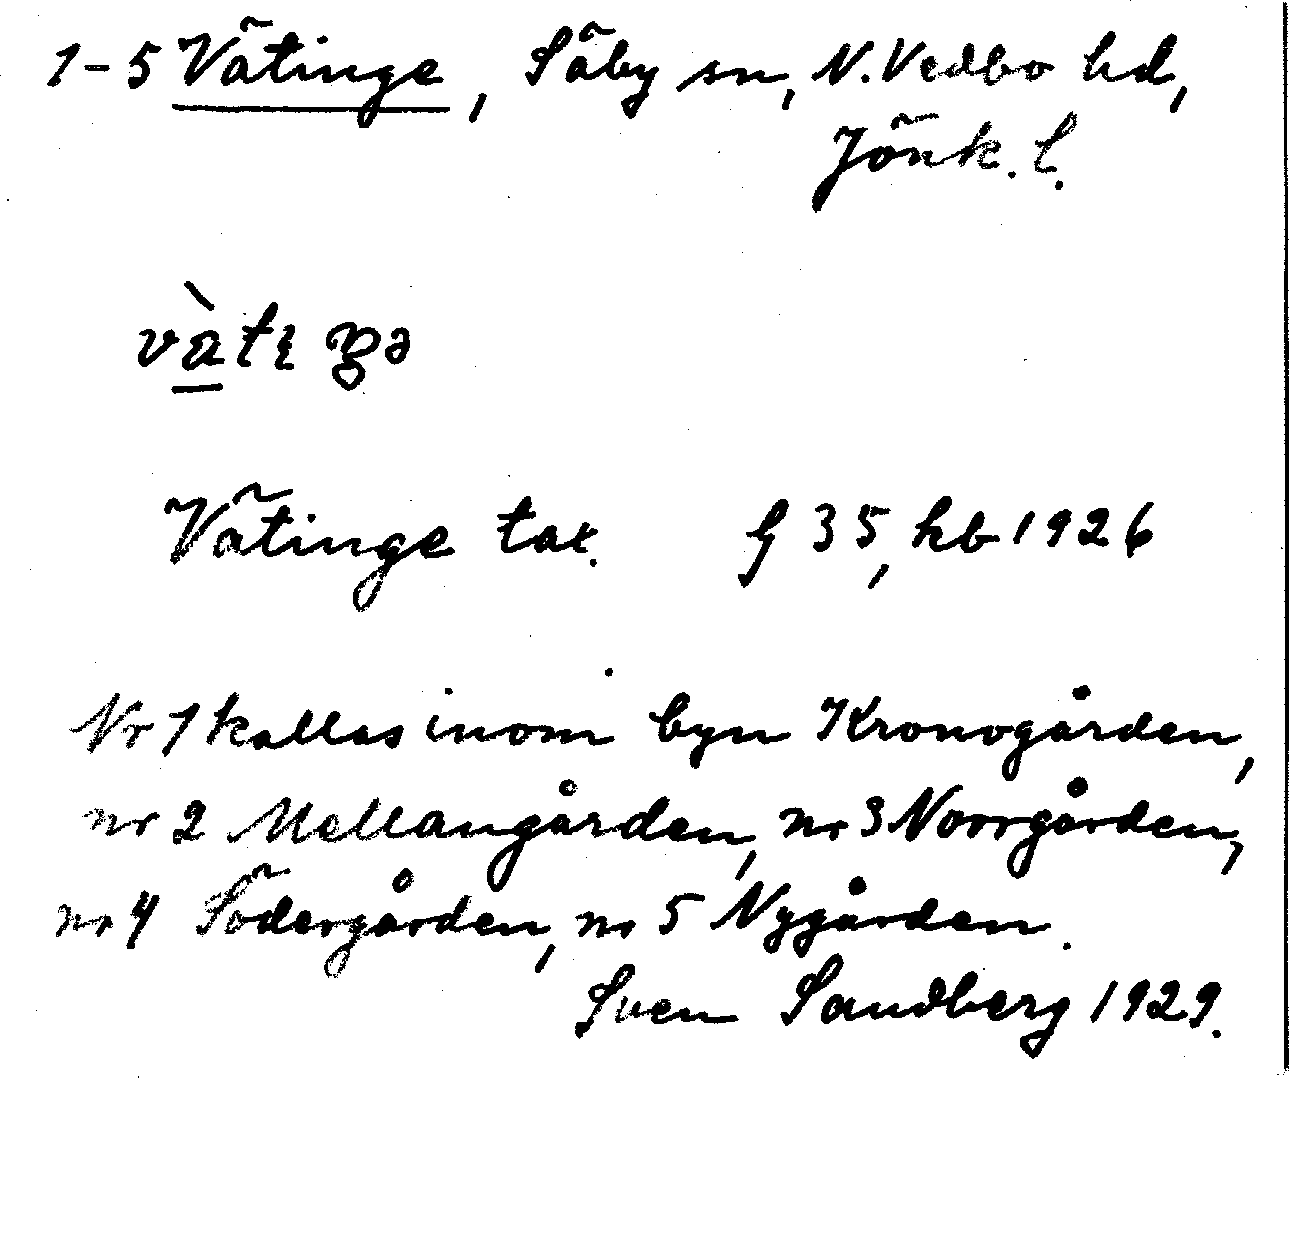 1-5 Vätinge, Säby sn, N. Vedbo hd,
Jönk. l.
Vätinge tax. f 35, hb 1926
Nr 1 kallas inom byn Kronogården,
nr 2 Mellangården, nr 3 Norrgården,
nr 4 Södergården, nr 5 Nygården.
Sven Sandberg 1929.